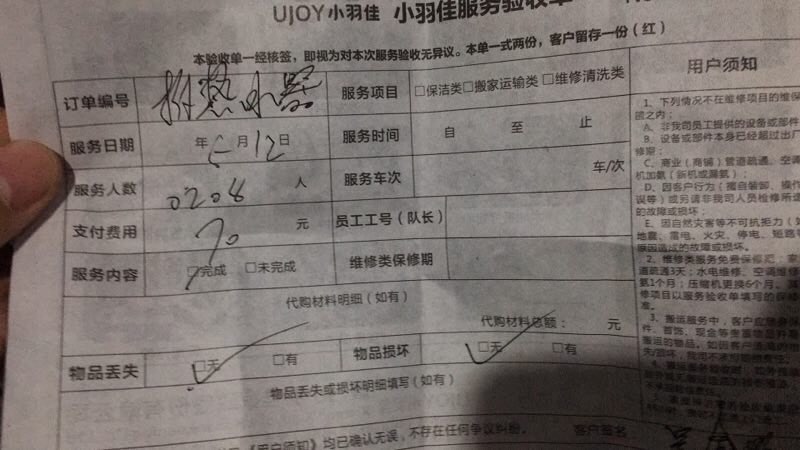 UJOY小羽佳 小羽佳服务验收单
本验收单一经核签，即视为对本次服务验收无异议。本单一式两份，客户留存一份（红）
订单编号 拆热水器 服务项目 □保洁类□搬家运输类□维修清洗类
服务日期 年5月12日 服务时间 自 至 止
服务人数 0208 人 服务车次 车/次
支付费用 70 元 员工工号（队长）
服务内容 □完成 □未完成 维修类保修期
代购材料明细（如有）
代购材料总额： 元
物品丢失 □无 □有 物品损坏 □无 □有
物品丢失或损坏明细填写（如有）
《用户须知》均已确认无误，不存在任何争议纠纷。 客户签名
用户须知
1、下列情况不在维修项目的维保
围之内：
A、非我司员工提供的设备或部件
B、设备或部件本身已经超过出厂
修期；
C、商业（商铺）管道疏通、空调
机加氨（新机或漏氨）；
D、因客户行为（擅自装卸、操作
误等）或另请非我司人员检修所造
的故障或损坏；
E、因自然灾害等不可抗拒力（如
地震、雷电、火灾、停电、短路等
原因造成的故障或损坏。
2、维修类服务免费保修期：家
道疏通3天；水电维修、空调维修
氨1个月；压缩机更换6个月。其
修项目以服务验收单填写的保修
准。
3、搬运服务中，客户应随身保
件、首饰、现金等贵重物品